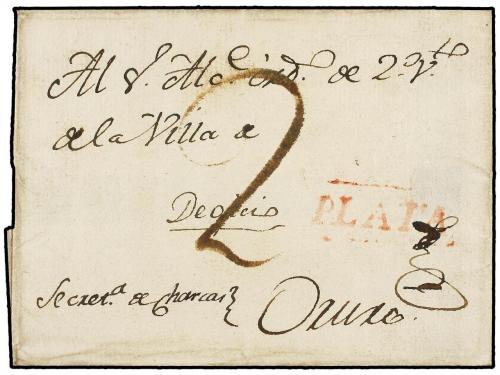 Al S.r Alc.e ord.o de 2.o V.to
de la Villa de
2
De oficio
PLATA
Secret.a de Charcas
Oruro.